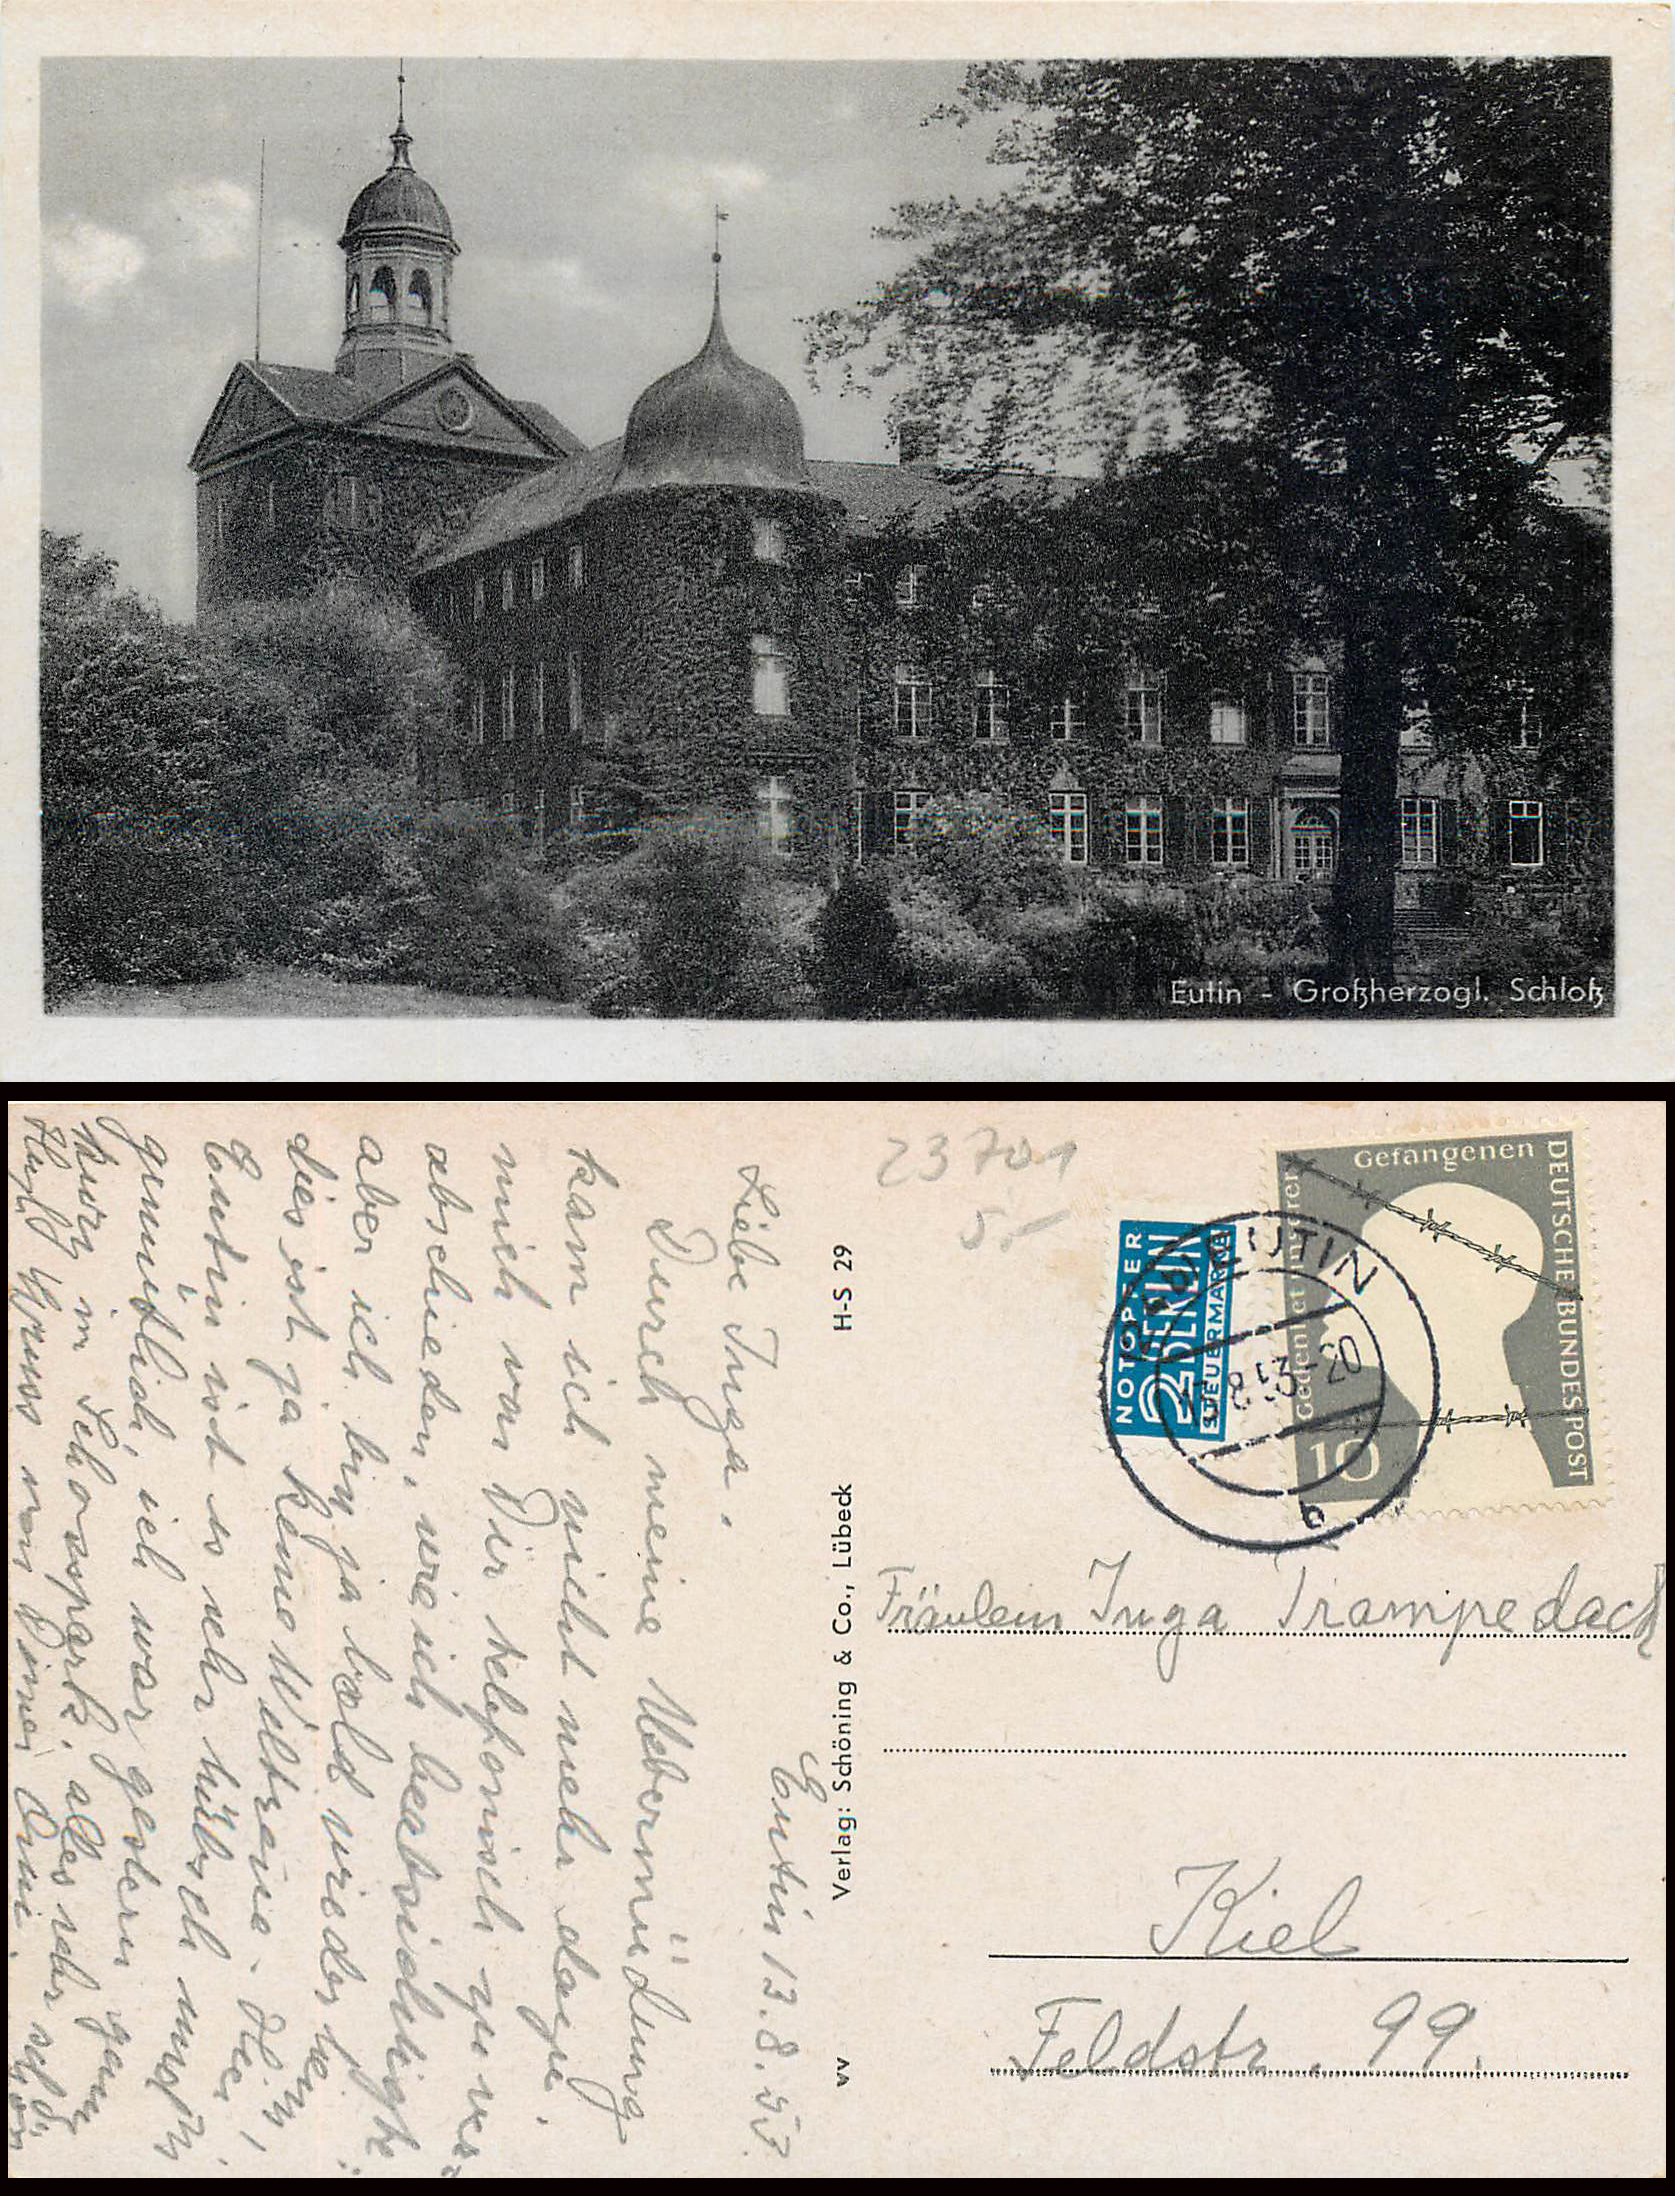 Eutin - Großherzogl. Schloß
Eutin 13.8.53.
Liebe Inga.
Durch meine Uebermüdung
kam ich nicht mehr dazu,
mich von Dir telefonisch zu ver-
abschieden, wie ich beabsichtigte
aber ich bin ja bald wieder hein,
dies ist ja keine Weltreise. Hier,
Eutin ist so sehr hübsch und
gemütlich, ich war gestern ganz
kurz im Schlosspark, alles sehr schön
Herzl. Gruss von Deiner Omi.
H-S 29
Verlag: Schöning & Co., Lübeck
vv
23701
5,-
NOTOPFER
2 BERLIN
STEUERMARKE
EUTIN
13.8.53-20
b
DEUTSCHE BUNDESPOST
Gedenket unserer
Gefangenen
10
Fräulein Inga Trampedach
Kiel
Feldstr. 99.